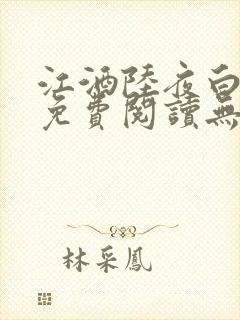 江酒陸夜白
免費閱讀無
林采鳳